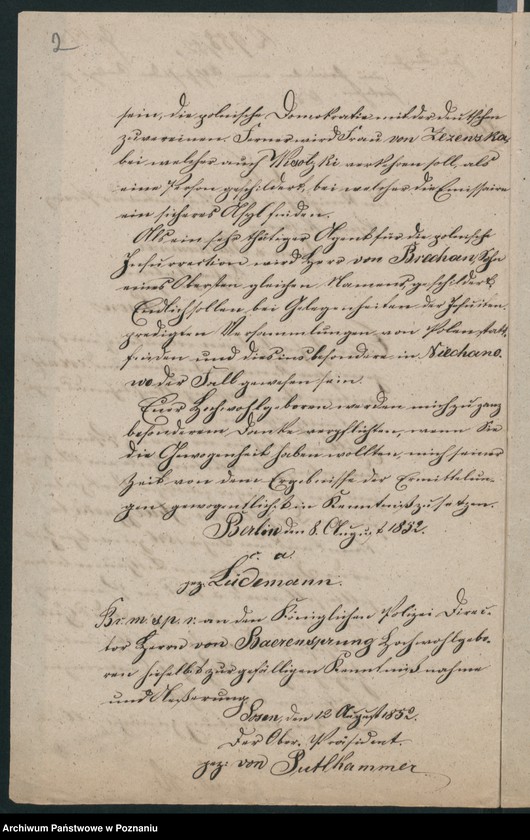 2
sein, die polnische Demokratie mit der deutschen
zu vereinen. Ferner wird Frau von Zezenska,
bei welcher auch Wisotzki verkehren soll, als
eine Person geschildert, bei welcher die Emissaire
ein sicheres Asyl finden.
Als ein sehr thätiger Agent für die polnische
Insurrection wird Herr von Brechan, Sohn
eines Obersten gleichen Namens, geschildert.
Endlich sollen bei Gelegenheiten der Jesuiten-
predigten Versammlungen von Polen statt-
finden und dies insbesondere in Niechano-
wo der Fall gewesen sein.
Euer Hochwohlgeboren werden mich zu ganz
besonderem Danke verpflichten, wenn Sie
die Gewogenheit haben wollten, mich seiner
Zeit von dem Ergebnisse der Ermittelun-
gen gewogentlichst in Kenntniß zu setzen.
Berlin den 8. August 1852.
gez. Lüdemann.
Br. m. s. p. r. an den Königlichen Polizei Direc-
tor Herrn von Baerensprung Hochwohlgebo-
ren hieselbst zur gefälligen Kenntnißnahme
und Aeußerung.
Posen, den 12 August 1852.
Der Ober-Präsident.
gez: von Puttkammer
Archiwum Państwowe w Poznaniu